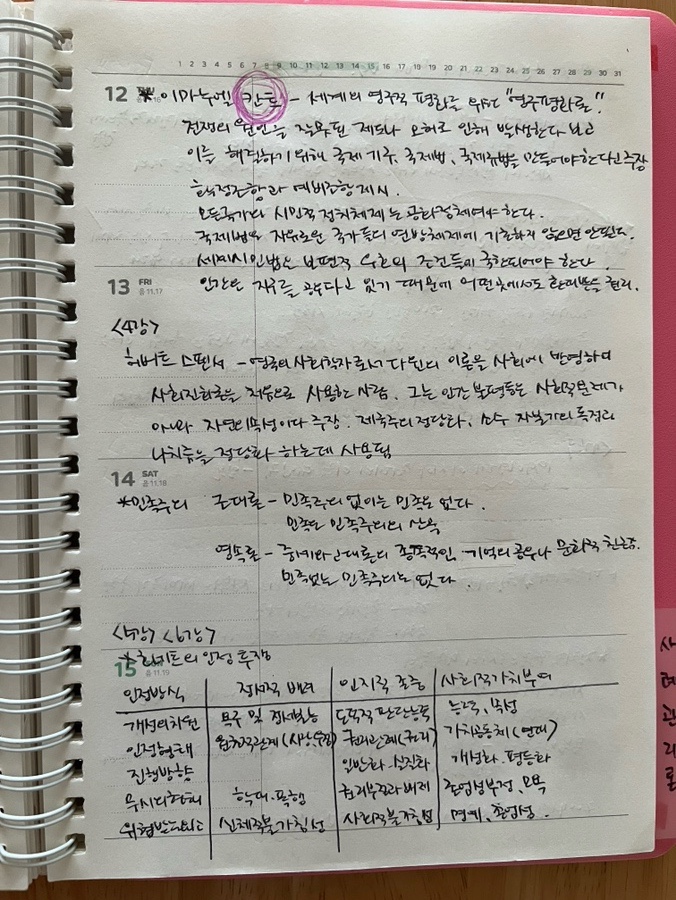 1 2 3 4 5 6 7 8 9 10 11 12 13 14 15 16 17 18 19 20 21 22 23 24 25 26 27 28 29 30 31
12 * 이마누엘 칸트 - 세계의 영구적 평화를 위해 "영구평화론".
전쟁의 원인을 잘못된 제도나 오해로 인해 발생한다 보고
이를 해결하기 위해 국제기구, 국제법, 국제규범을 만들어야한다고 주장
확정조항과 예비조항 제시.
모든국가의 시민적 정치체제는 공화정체여야 한다.
국제법은 자유로운 국가들의 연방체제에 기초하지 않으면 안된다.
세계시민법은 보편적 우호의 조건들에 국한되어야 한다.
13 FRI
음 11.17
인간은 지구를 공유하고 있기 때문에 어떤곳에서도 환대받을 권리.
<4강>
허버트 스펜서 - 영국의 사회학자로서 다윈의 이론을 사회에 반영하여
사회진화론을 처음으로 사용한 사람. 그는 인간 불평등은 사회적문제가
아니라 자연의 속성이다 주장. 제국주의 정당화, 소수 자본가의 독점과
나치즘을 정당화 하는데 사용됨
14 SAT
음 11.18
*민족주의 근대론 - 민족주의 없이는 민족도 없다.
민족은 민족주의의 산물
영속론 - 기억의 공유나 문화적 친근감.
민족없는 민족주의는 없다
<5강> <6강>
* 의 인정 투쟁
15
음 11.19
인정방식 정서적 배려 인지적 존중 사회적가치부여
개성의차원 욕구 및 정서본능 도덕적 판단능력 능력, 속성
인정형태 원초적관계 (사랑, 우정) 권리관계 (권리) 가치공동체 (연대)
진행방향 일반화·실질화 개성화·평등화
무시의형태 학대·폭행 권리부정과 배제 존엄성부정, 모욕
신체적불가침성 사회적불가침성 명예, 존엄성.